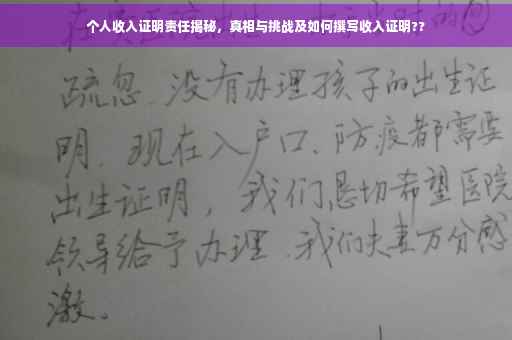 个人收入证明责任揭秘，真相与挑战及如何撰写收入证明??
疏忽.没有办理孩子的出生证
明.现在入户口、防疫都需要
出生证明，我们恳切希望医院
领导给予办理.我们夫妻万分感
激。